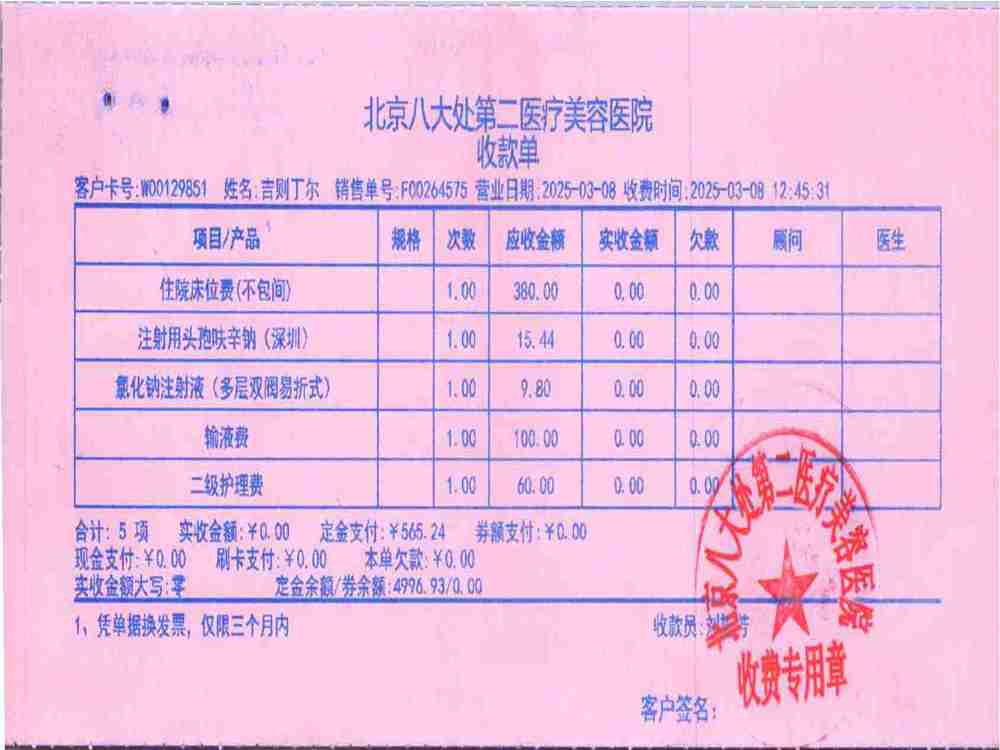 北京八大处第二医疗美容医院
收款单
客户卡号:W00129851 姓名:吉则丁尔 销售单号:F00264575 营业日期:2025-03-08 收费时间:2025-03-08 12:45:31
项目/产品 规格 次数 应收金额 实收金额 欠款 顾问 医生
住院床位费(不包间) 1.00 380.00 0.00 0.00
注射用头孢呋辛钠（深圳） 1.00 15.44 0.00 0.00
氯化钠注射液（多层双阀易折式） 1.00 9.80 0.00 0.00
输液费 1.00 100.00 0.00 0.00
二级护理费 1.00 60.00 0.00 0.00
合计: 5 项 实收金额:￥0.00 定金支付:￥565.24 券额支付:￥0.00
现金支付:￥0.00 刷卡支付:￥0.00 本单欠款:￥0.00
实收金额大写:零 定金余额/券余额:4996.93/0.00
1、凭单据换发票，仅限三个月内 收款员:刘
客户签名:
北京八大处第二医疗美容医院
收费专用章